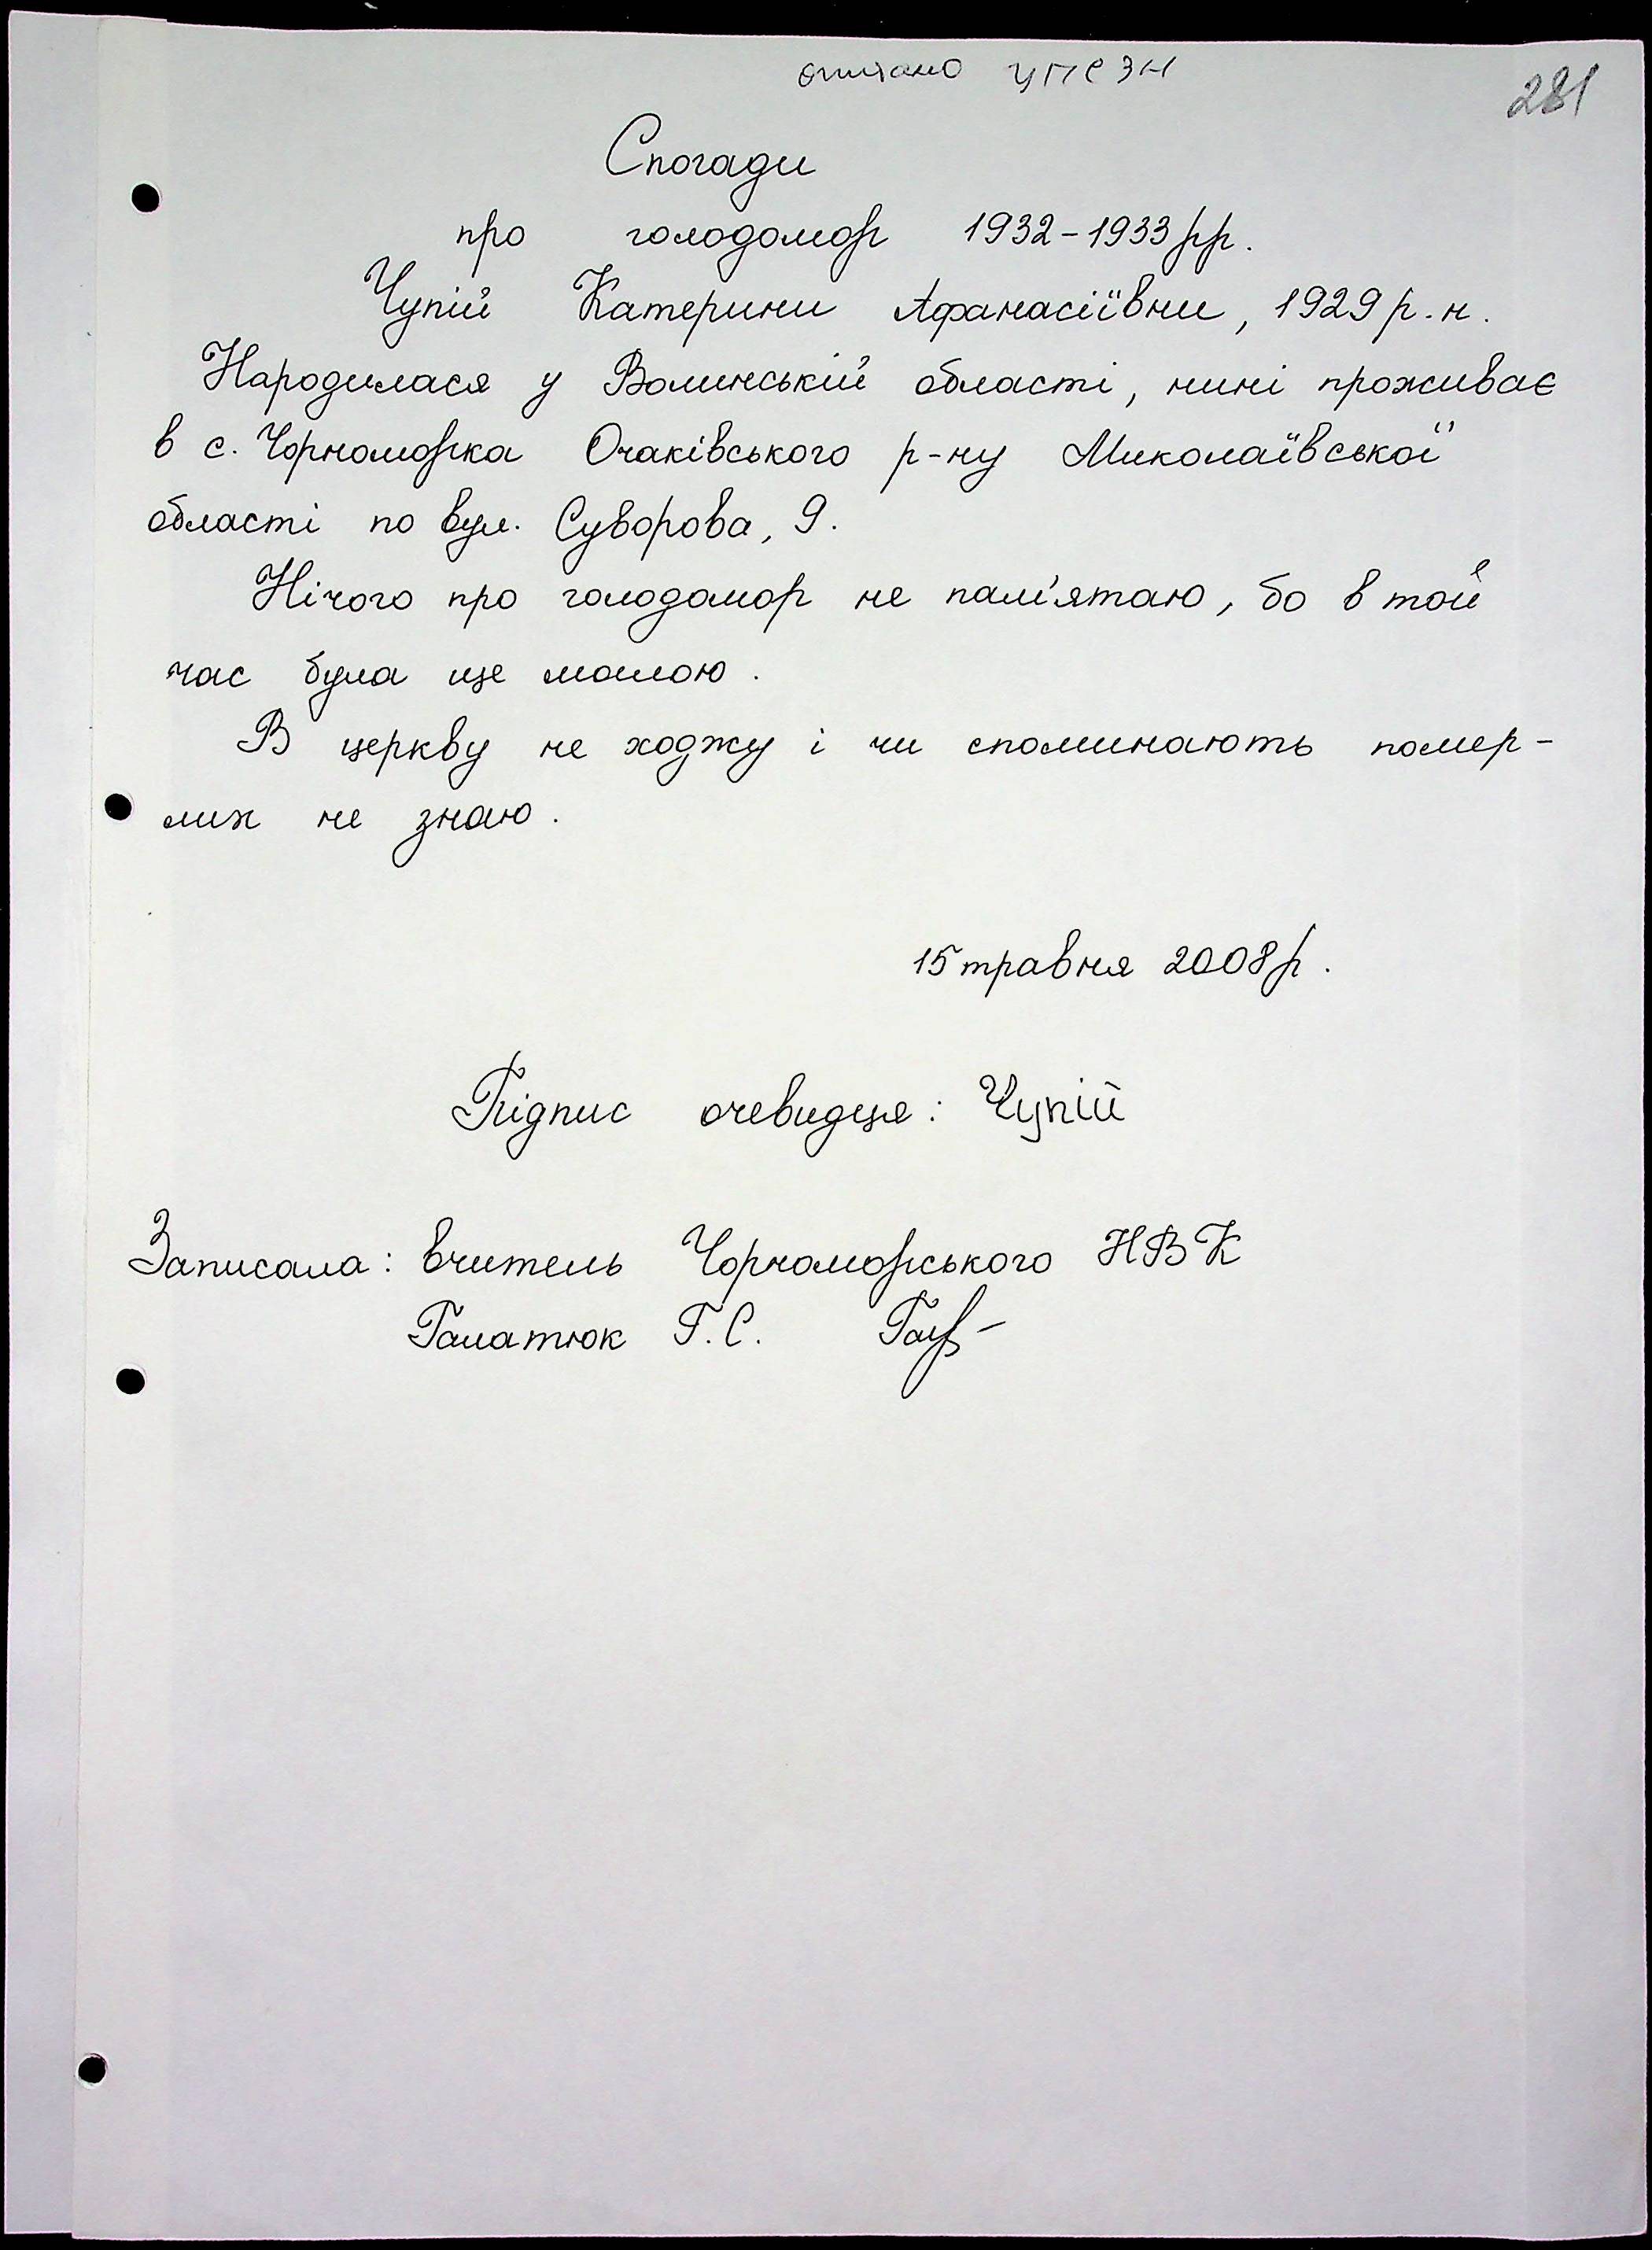 опитано УПСЗН
281
Спогади
про голодомор 1932-1933 рр.
Чупій Катерини Афанасіївни, 1929 р. н.
Народилася у Волинській області, нині проживає
в с. Чорноморка Очаківського р-ну Миколаївської
області по вул. Суворова, 9.
Нічого про голодомор не пам'ятаю, бо в той
час була ще малою.
В церкву не ходжу і чи споминають помер-
лих не знаю.
15 травня 2008 р.
Підпис очевидця: Чупій
Записала: вчитель Чорноморського НВК
Галатюк Г. С.